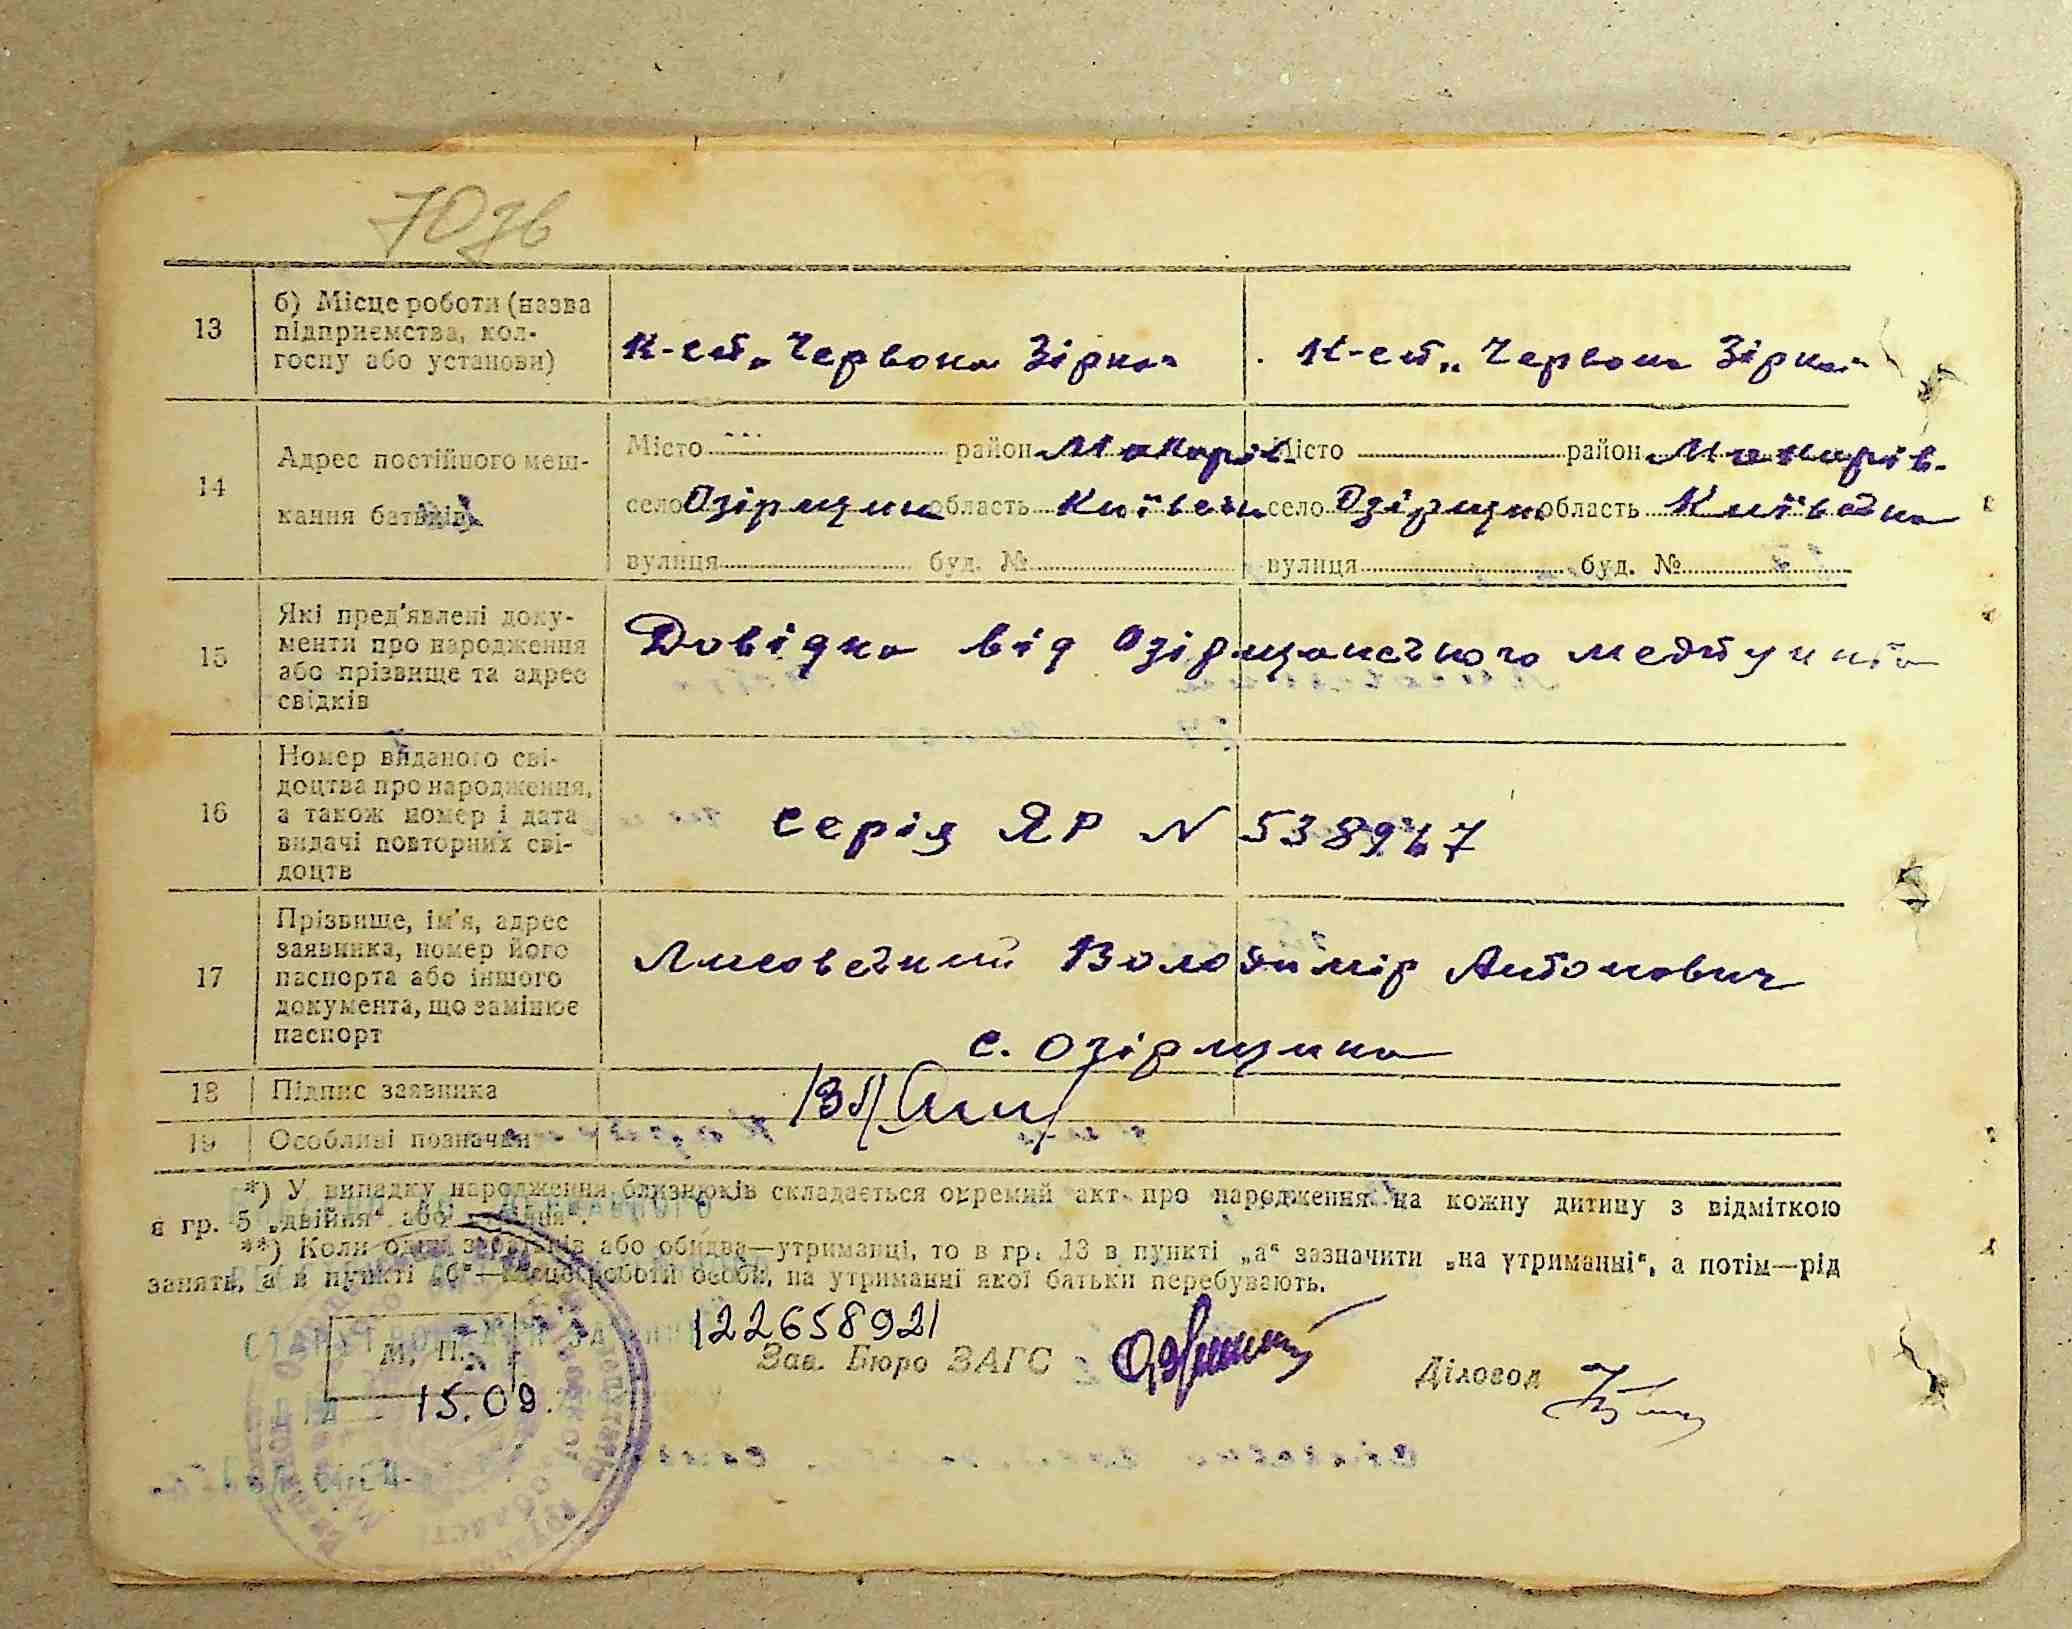 70зв
13
б) Місце роботи (назва
підприємства, кол-
госпу або установи)
К-сп „Червона Зірка"
К-сп „Червона Зірка"
14
Адрес постійного меш-
кання батьків
Місто район Макарів.
село Озірщина область Київська
вулиця буд. №
Місто район Макарів.
село Озірщина область Київська
вулиця буд. №
15
Які пред'явлені доку-
менти про народження
або прізвище та адрес
свідків
Довідка від Озірщанського медпункта
16
Номер виданого сві-
доцтва про народження,
а також номер і дата
видачі повторних сві-
доцтв
Серія ЯР N 538947
17
Прізвище, ім'я, адрес
заявника, номер його
паспорта або іншого
документа, що замінює
паспорт
Лисовський Володимір Антонович
с. Озірщина
18
Підпис заявника
19
Особливі позначки
*) У випадку народження близнюків складається окремий акт про народження на кожну дитину з відміткою
в гр. 5 „двійня" або „трійня".
**) Коли один з батьків або обидва—утриманці, то в гр. 13 в пункті „а" зазначити „на утриманні", а потім—рід
занять, а в пункті „б"—місце роботи особи, на утриманні якої батьки перебувають.
М. П.
122658921
Зав. Бюро ЗАГС
Діловод
15.09.